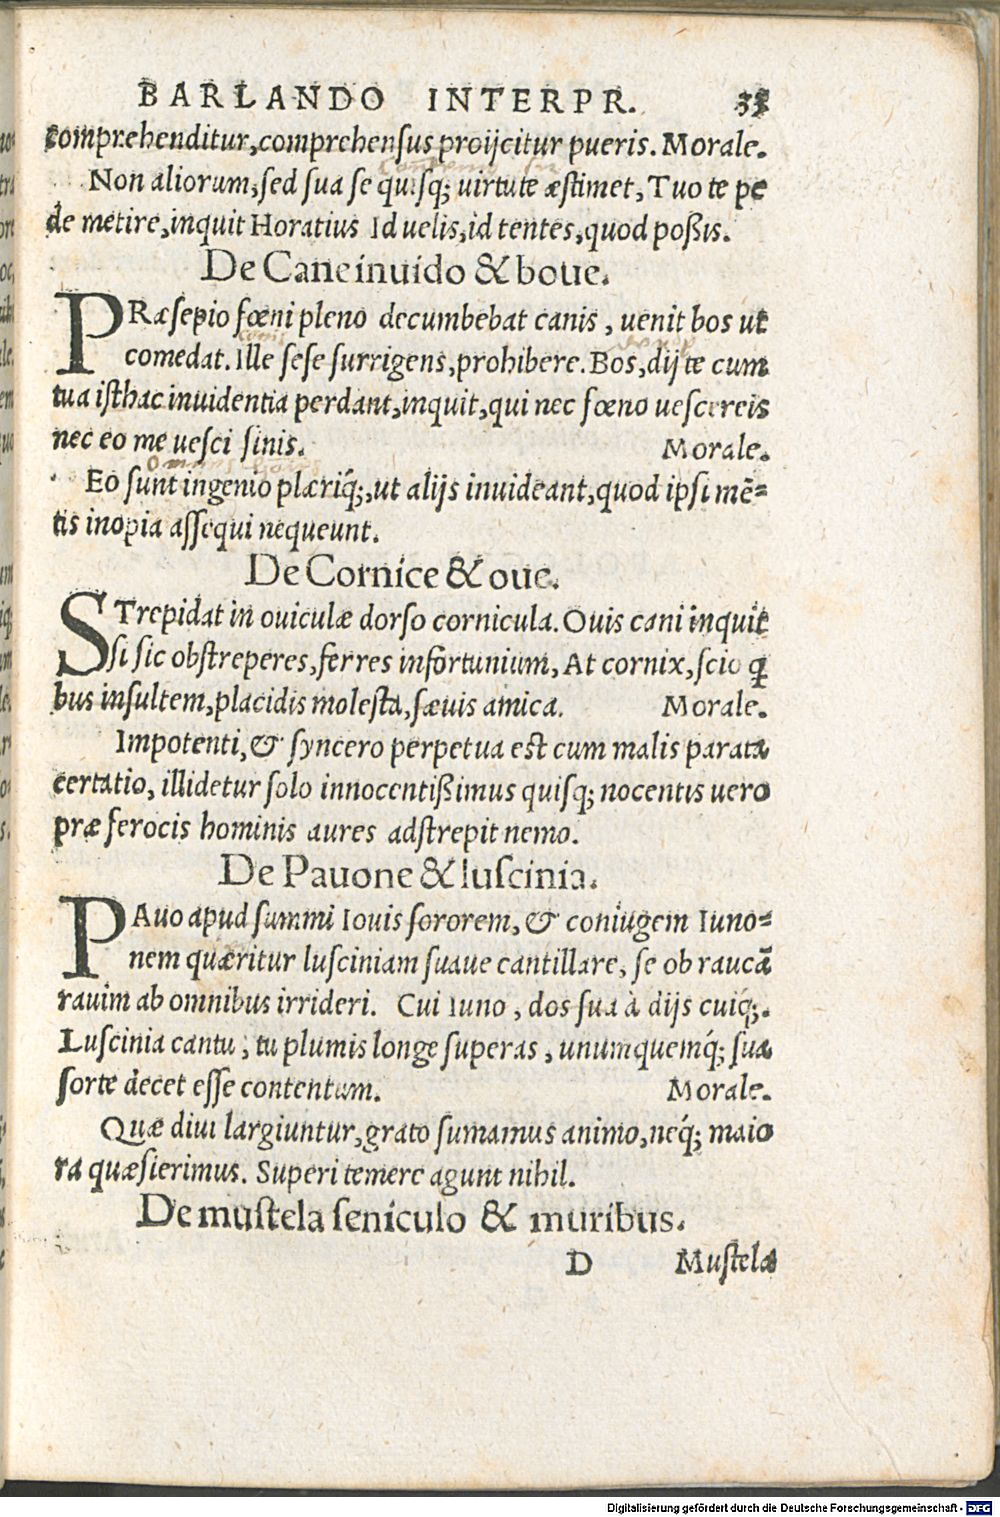 BARLANDO INTERPR. 33
comprehenditur,comprehensus proijcitur pueris. Morale.
Non aliorum,sed sua se quisq; uirtute æstimet, Tuo te pe
de metire,inquit Horatius Id uelis,id tentes,quod poßis.
De Cane inuido & boue.
PRæsepio fœni pleno decumbebat canis, uenit bos ut
comedat. Ille sese surrigens,prohibere. Bos,dij te cum
tua isthac inuidentia perdant,inquit,qui nec fœno uescereis
nec eo me uesci sinis. Morale.
Eo sunt ingenio plæriq́;,ut alijs inuideant,quod ipsi mẽ=
tis inopia assequi nequeunt.
De Cornice & oue.
STrepidat in ouiculæ dorso cornicula. Ouis cani inquit
si sic obstreperes,ferres infortunium, At cornix,scio q̃
bus insultem,placidis molesta,sæuis amica. Morale.
Impotenti,& syncero perpetua est cum malis parata
certatio, illidetur solo innocentißimus quisq; nocentis uero
præ ferocis hominis aures adstrepit nemo.
De Pauone & luscinia.
PAuo apud summi Iouis sororem, & coniugem Iuno=
nem quæritur lusciniam suaue cantillare, se ob raucã
rauim ab omnibus irrideri. Cui Iuno, dos sua à dijs cuiq́;.
Luscinia cantu, tu plumis longe superas, unumquemq́; sua
sorte decet esse contentum. Morale.
Quæ diui largiuntur,grato sumamus animo,neq́; maio
ra quæsierimus. Superi temere agunt nihil.
De mustela seniculo & muribus.
D Mustela
Digitalisierung gefördert durch die Deutsche Forschungsgemeinschaft - DFG